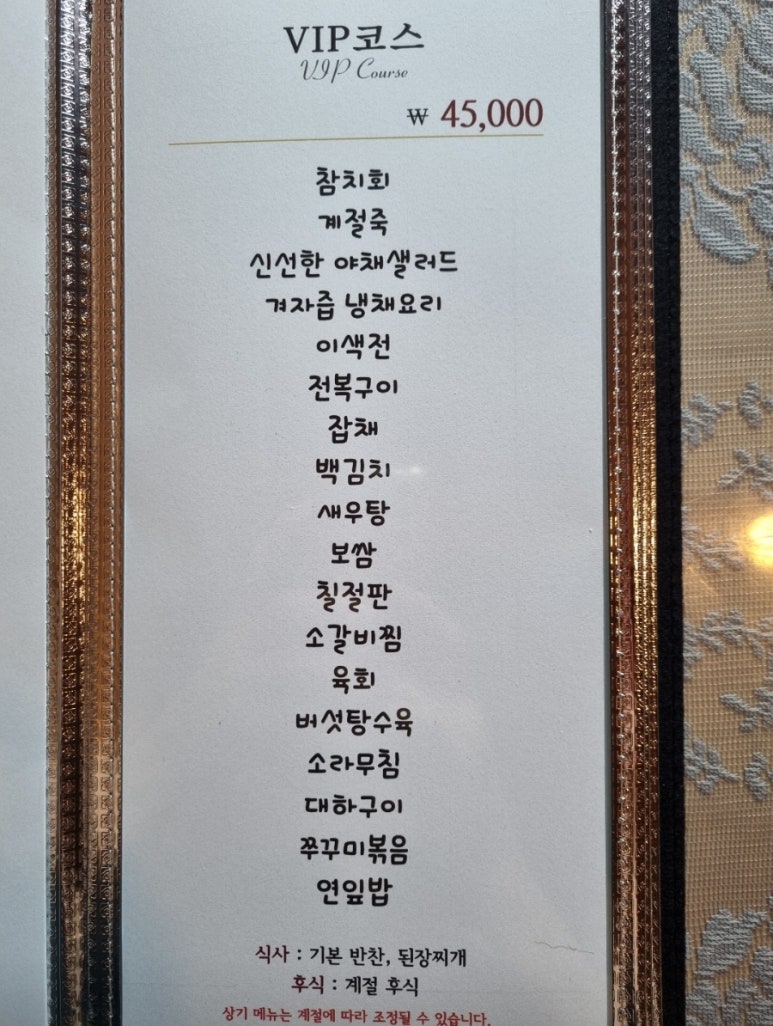 VIP코스
VIP Course
₩ 45,000
참치회
계절죽
신선한 야채샐러드
겨자즙 냉채요리
이색전
전복구이
잡채
백김치
새우탕
보쌈
칠절판
소갈비찜
육회
버섯탕수육
소라무침
대하구이
쭈꾸미볶음
연잎밥
식사 : 기본 반찬, 된장찌개
후식 : 계절 후식
상기 메뉴는 계절에 따라 조정될 수 있습니다.